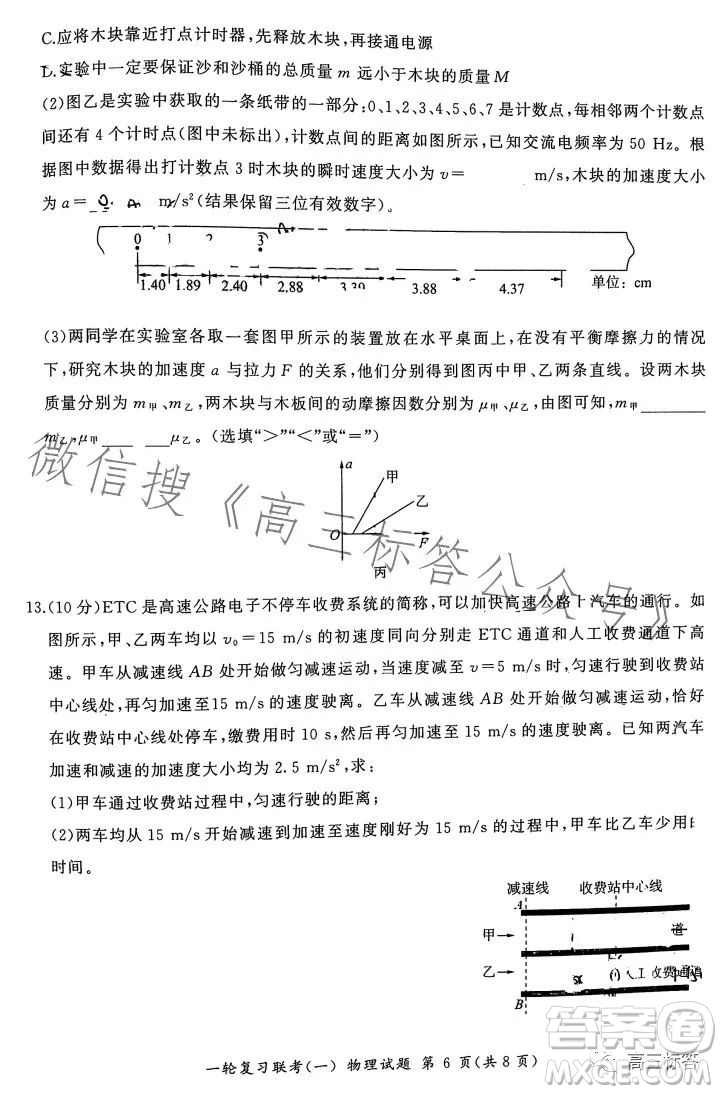 C.应将木块靠近打点计时器,先释放木块,再接通电源
实验中一定要保证沙和沙桶的总质量 m 远小于木块的质量 M
(2)图乙是实验中获取的一条纸带的一部分:0、1、2、3、4、5、6、7 是计数点,每相邻两个计数点
间还有 4 个计时点(图中未标出),计数点间的距离如图所示,已知交流电频率为 50 Hz。根
据图中数据得出打计数点 3 时木块的瞬时速度大小为 v= m/s,木块的加速度大小
为 a= m/s²(结果保留三位有效数字)。
0 1 2 3
1.40 1.89 2.40 2.88 3.39 3.88 4.37 单位: cm
(3)两同学在实验室各取一套图甲所示的装置放在水平桌面上,在没有平衡摩擦力的情况
下,研究木块的加速度 a 与拉力 F 的关系,他们分别得到图丙中甲、乙两条直线。设两木块
质量分别为 m甲、m乙,两木块与木板间的动摩擦因数分别为 μ甲、μ乙,由图可知,m甲
m乙,μ甲 μ乙。(选填“>”“<”或“=”)
a
甲
乙
O F
丙
微信搜《高三标答公众号》
13.(10 分)ETC 是高速公路电子不停车收费系统的简称,可以加快高速公路上汽车的通行。如
图所示,甲、乙两车均以 v₀=15 m/s 的初速度同向分别走 ETC 通道和人工收费通道下高
速。甲车从减速线 AB 处开始做匀减速运动,当速度减至 v=5 m/s 时,匀速行驶到收费站
中心线处,再匀加速至15 m/s 的速度驶离。乙车从减速线 AB 处开始做匀减速运动,恰好
在收费站中心线处停车,缴费用时 10 s,然后再匀加速至 15 m/s 的速度驶离。已知两汽车
加速和减速的加速度大小为 2.5 m/s²,求:
(1)甲车通过收费站过程中,匀速行驶的距离;
(2)两车均从 15 m/s 开始减速到加速至速度刚好为 15 m/s 的过程中,甲车比乙车少用的
时间。
减速线 收费站中心线
A
甲→ 道
乙→ 人工收费通道
B
答案圈
高三标答
一轮复习联考(一) 物理试题 第 6 页(共 8 页)